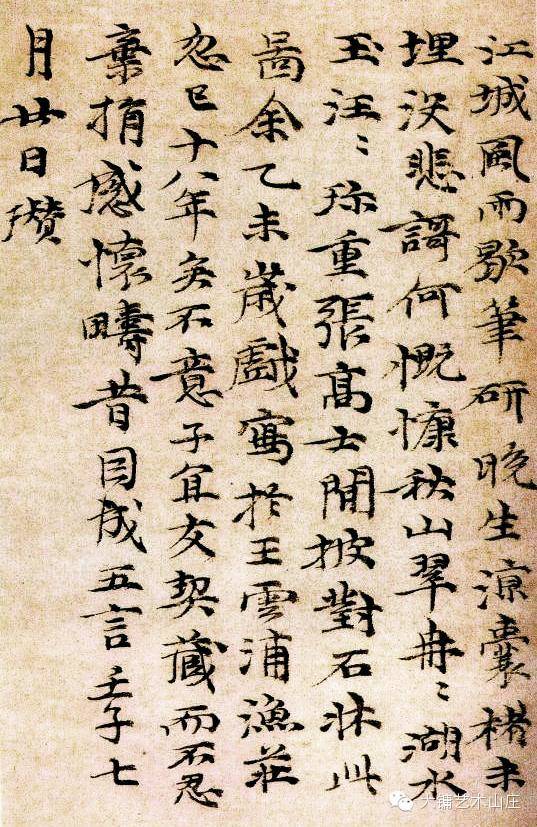 江城風雨歇筆研晚生涼囊楮未
埋没悲謌何慨慷秋山翠冉〻湖水
玉汪〻珎重張高士閒披對石牀此
啚余乙未歲戲寫於王雲浦漁莊
忽已十八年矣不意子宜友契藏而不忍
棄捐感懷疇昔因成五言壬子七
月廿日瓚
艺术山庄